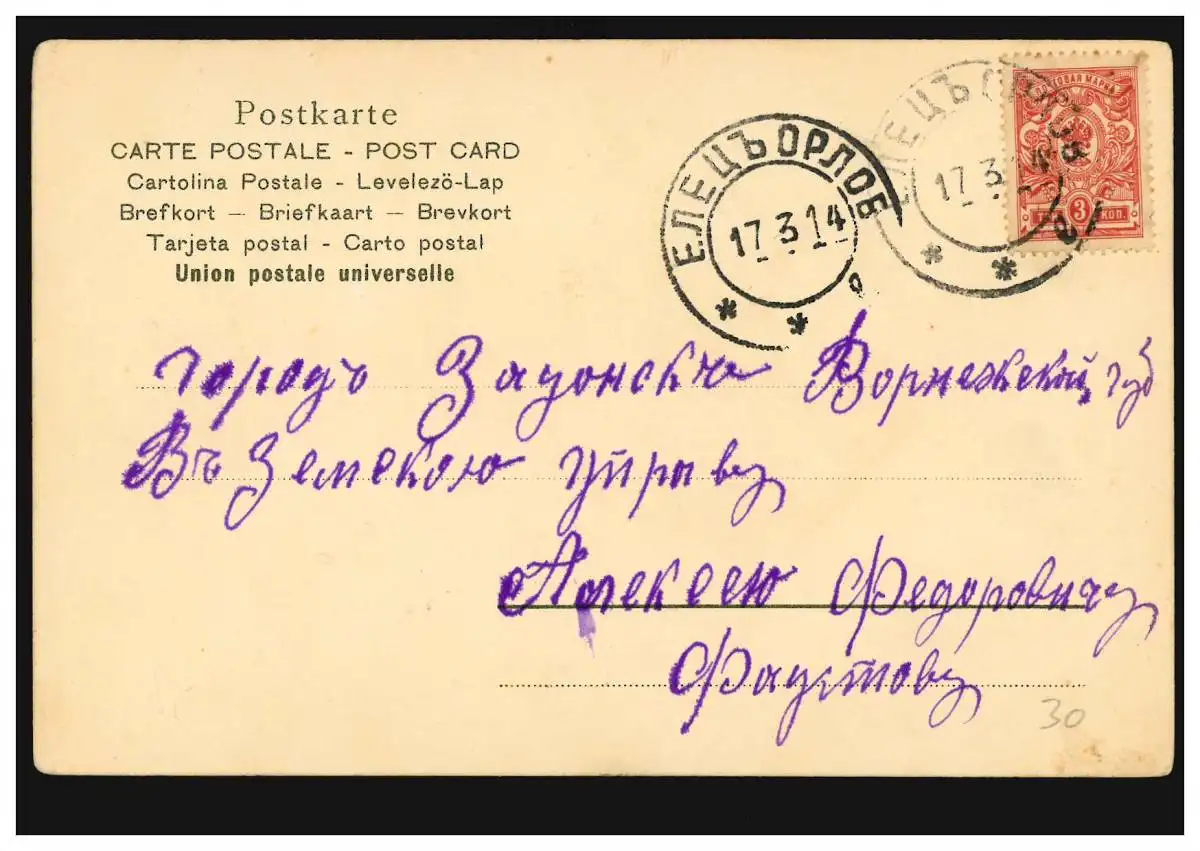 Postkarte
CARTE POSTALE - POST CARD
Cartolina Postale - Levelezö-Lap
Brefkort — Briefkaart — Brevkort
Tarjeta postal - Carto postal
Union postale universelle
ЕЛЕЦЪ ОРЛОВ
17.3.14
ЕЛЕЦЪ
17.3
МАРКА
3 КОП.
Городъ Задонскъ Ворнежской губ
Въ Земскою управу
Алексею Федоровичу
Фаустову
30